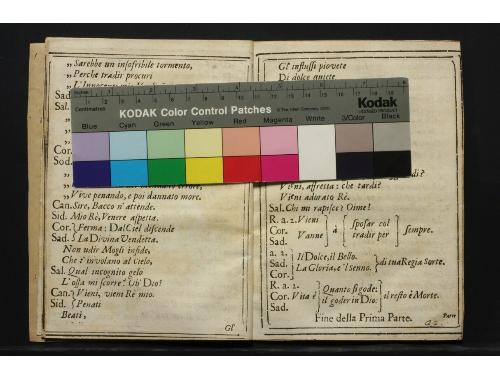 „Sarebbe un insofribile tormento,
„Perche tradir procuri
Sad.
Sal.
Cor.
Sad.
„Vive penando, e poi dannato more.
Can. Sire, Bacco n'attende.
Sid. Mio Rè, Venere aspetta.
Cor. Ferma: Dal Ciel discende
Sad. La Divina Vendetta.
Non udir Mogli infide,
Che t'involano al Cielo,
Sal. Qual incognito gelo
L'ossa mi scorre! Oh' Dio!
Can. Vieni, vieni Rè mio.
Sid. Penati
Beati,
Gl'
Gl' influssi piovete
Di dolce quiete
Centimetres
KODAK Color Control Patches
© The Tiffen Company, 2000
Kodak
LICENSED PRODUCT
Blue
Cyan
Green
Yellow
Red
Magenta
White
3/Color
Black
Vieni, affretta: che tardi?
Vieni adorato Rè.
Sal. Chi mi rapisce? Oime!
R. a 2. Vieni
Cor. Vanne à sposar col tradir per sempre.
Sad.
a. 2. Il Dolce, il Bello.
Cor. La Gloria, e'l Senno. di tua Regia Sorte.
Sad.
R. a 2. Quanto si gode:
Cor. Vita è il goder in Dio: il resto è Morte.
Sad.
Fine della Prima Parte.
Parte